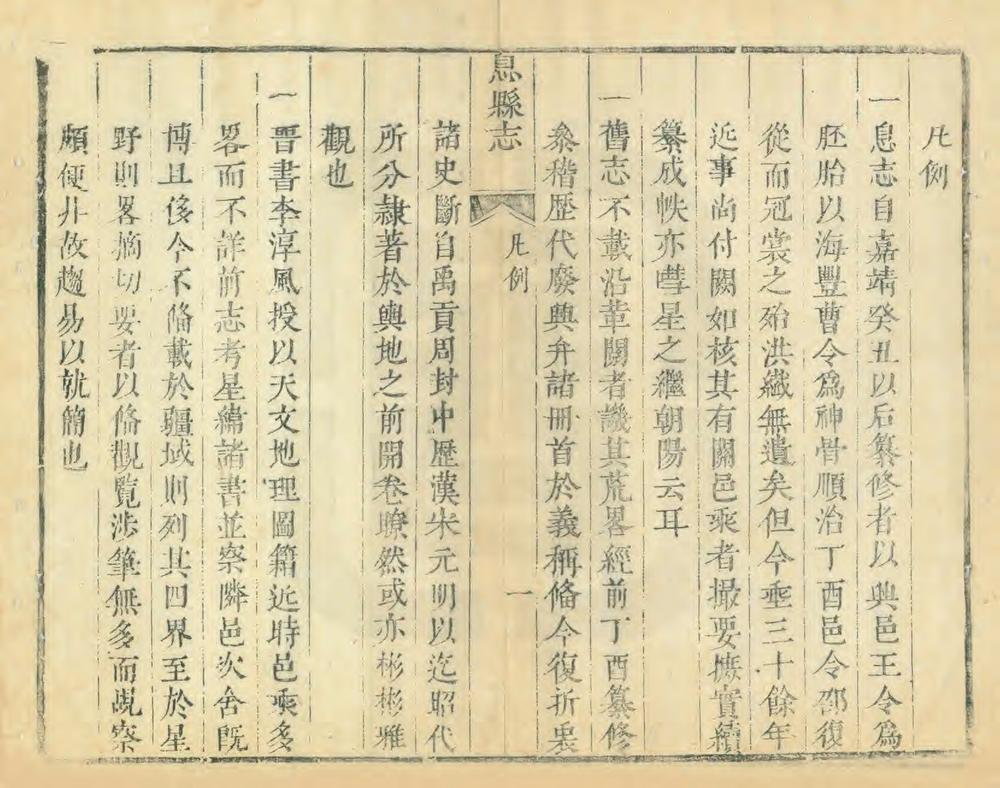 凡例
一息志自嘉靖癸丑以后纂修者以興邑王令爲
胚胎以海豐曹令爲神骨順治丁酉邑令邵復
從而冠裳之殆洪纖無遺矣但今垂三十餘年
近事尚付闕如核其有關邑乘者撮要摭實續
纂成帙亦彗星之繼朝陽云耳
一舊志不載沿革閱者譏其荒畧經前丁酉纂修
叅稽歷代廢興弁諸冊首於義稱俻今復折衷
息縣志
凡例
一
諸史斷自禹貢周封中歷漢宋元明以迄昭代
所分隷著於輿地之前開卷瞭然或亦彬彬雅
觀也
一晋書李淳風授以天文地理圖籍近時邑乘多
畧而不詳前志考星緯諸書並察隣邑次舍旣
博且侈今不俻載於疆域則列其四界至於星
野則畧摘切要者以俻觀覧涉筆無多而覘察
頗便非故趨易以就簡也